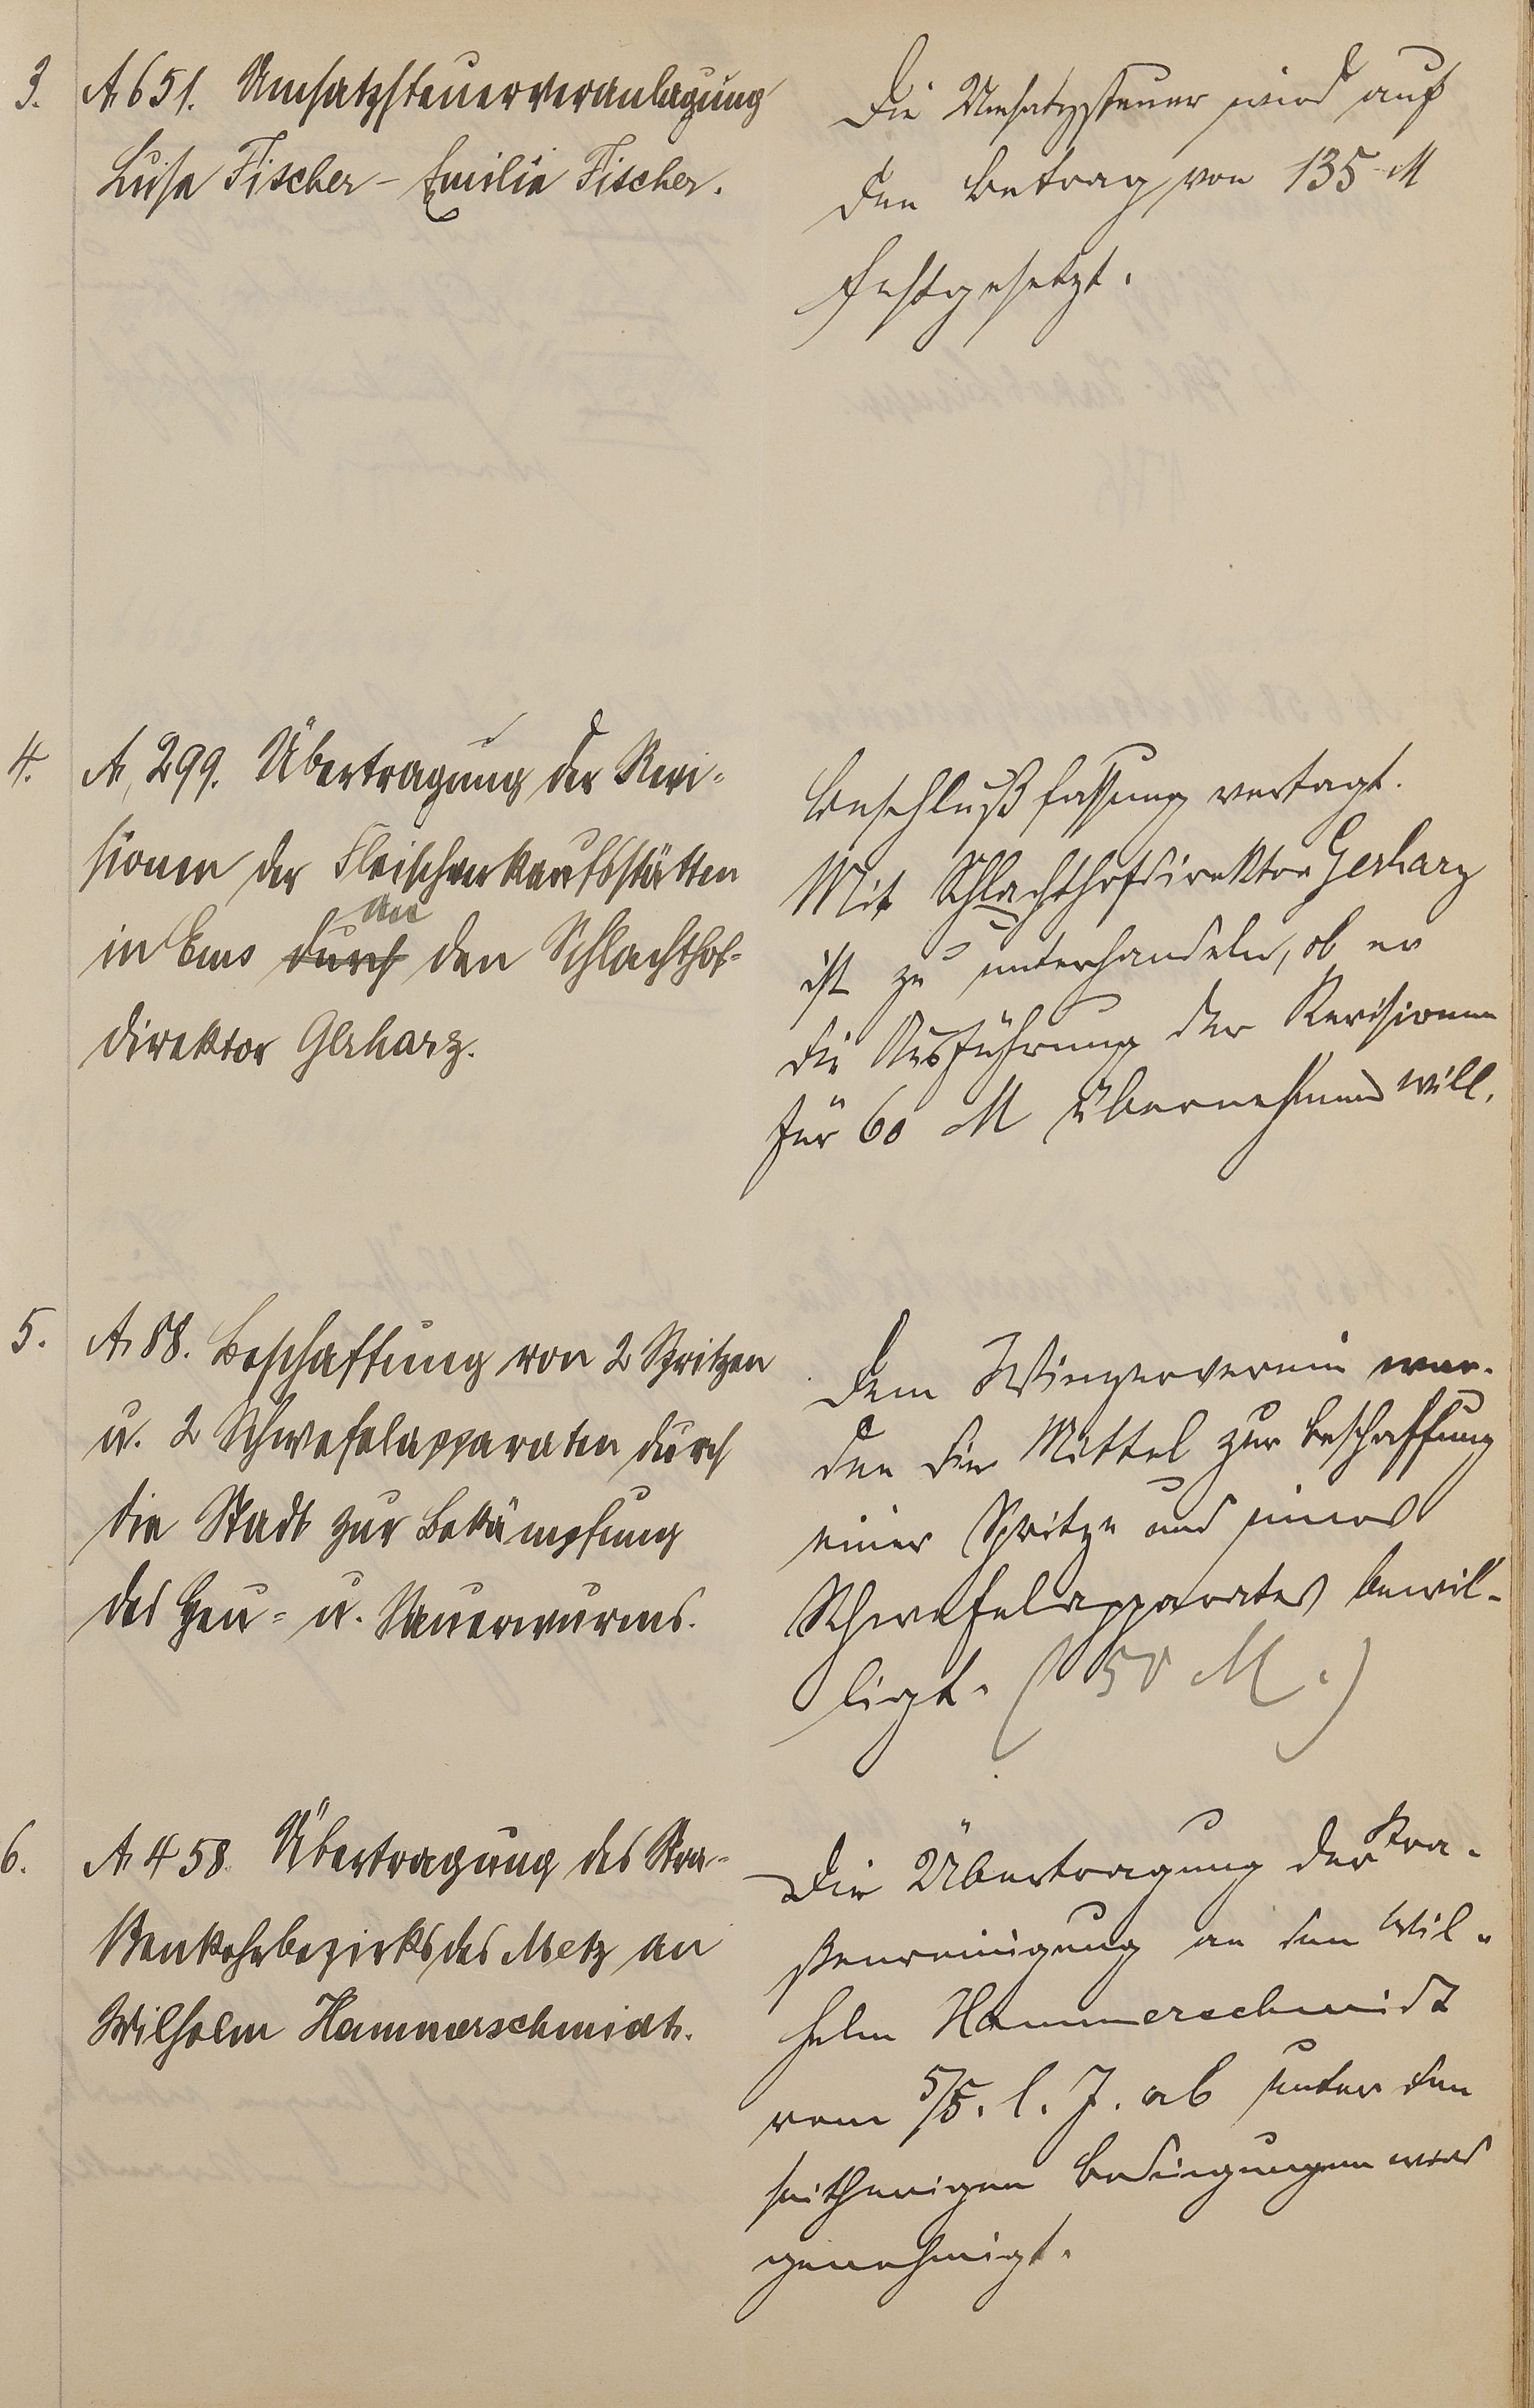 3. A 651. Umsatzsteuerveranlagung
Luise Fischer - Emilie Fischer.
Die Umsatzsteuer wird auf
den Betrag von 135 M
festgesetzt.
4. A, 299. Übertragung der Revi-
sionen der Fleischverkaufsstätten
an
in Ems durch den Schlachthof-
direktor Gerharz.
Beschlußfassung vertagt.
Mit Schlachthofdirektor Gerharz
ist zu unterhandeln, ob er
die Ausführung der Revisionen
für 60 M übernehmen will.
5. A 88. Beschaffung von 2 Spritzen
u. 2 Schwefelapparaten durch
die Stadt zur Bekämpfung
des Heu- u. Sauerwurms.
Dem Winzerverein wer-
den die Mittel zur Beschaffung
einer Spritze und eines
Schwefelapparates bewil-
ligt. (50 M.)
6. A 458. Übertragung des Stra-
ßenkehrbezirks des Metz an
Wilhelm Hammerschmidt.
Die Übertragung der Stra-
ßenreinigung an den Wil-
helm Hammerschmidt
vom 5/5. l. J. ab unter den
seitherigen Bedingungen wird
genehmigt.